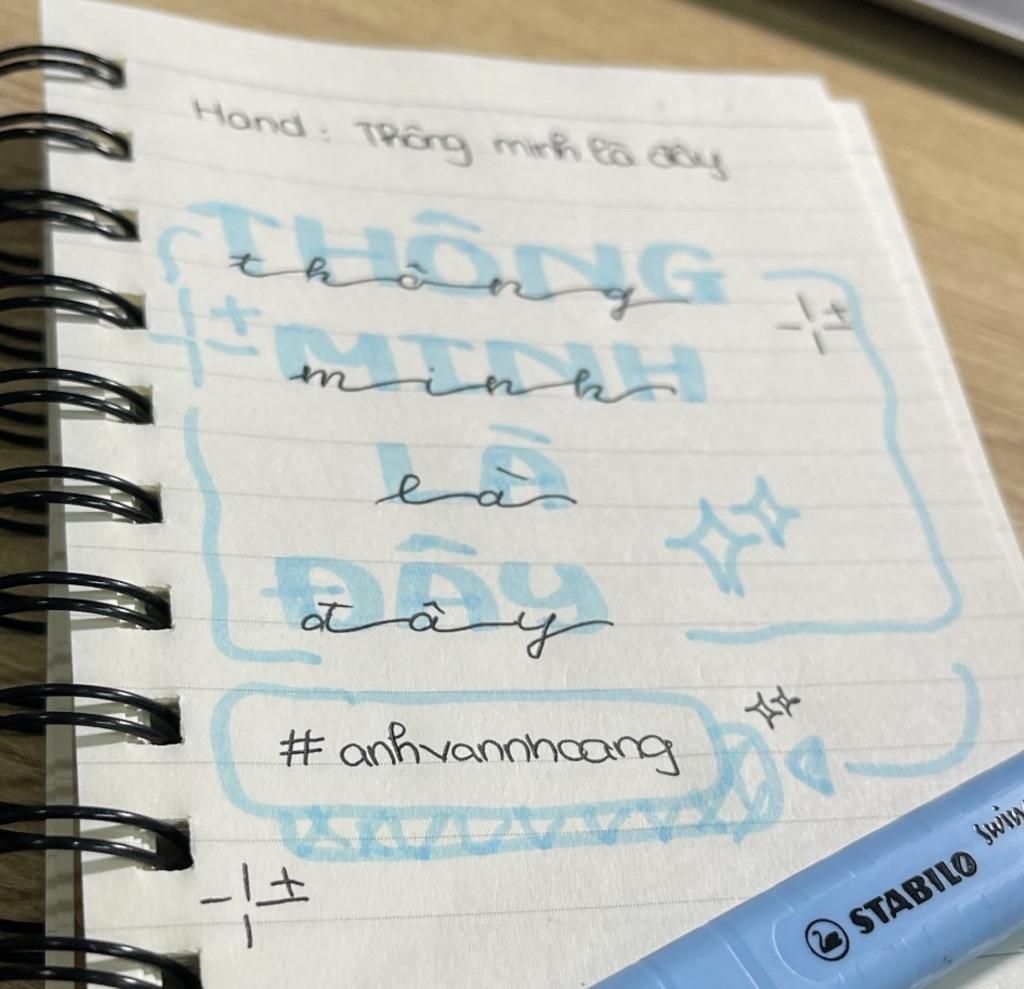 Hand: Thông minh là đây
THÔNG
thông
MINH
minh
LÀ
là
ĐÂY
đây
#anhvannhoang
STABILO swin